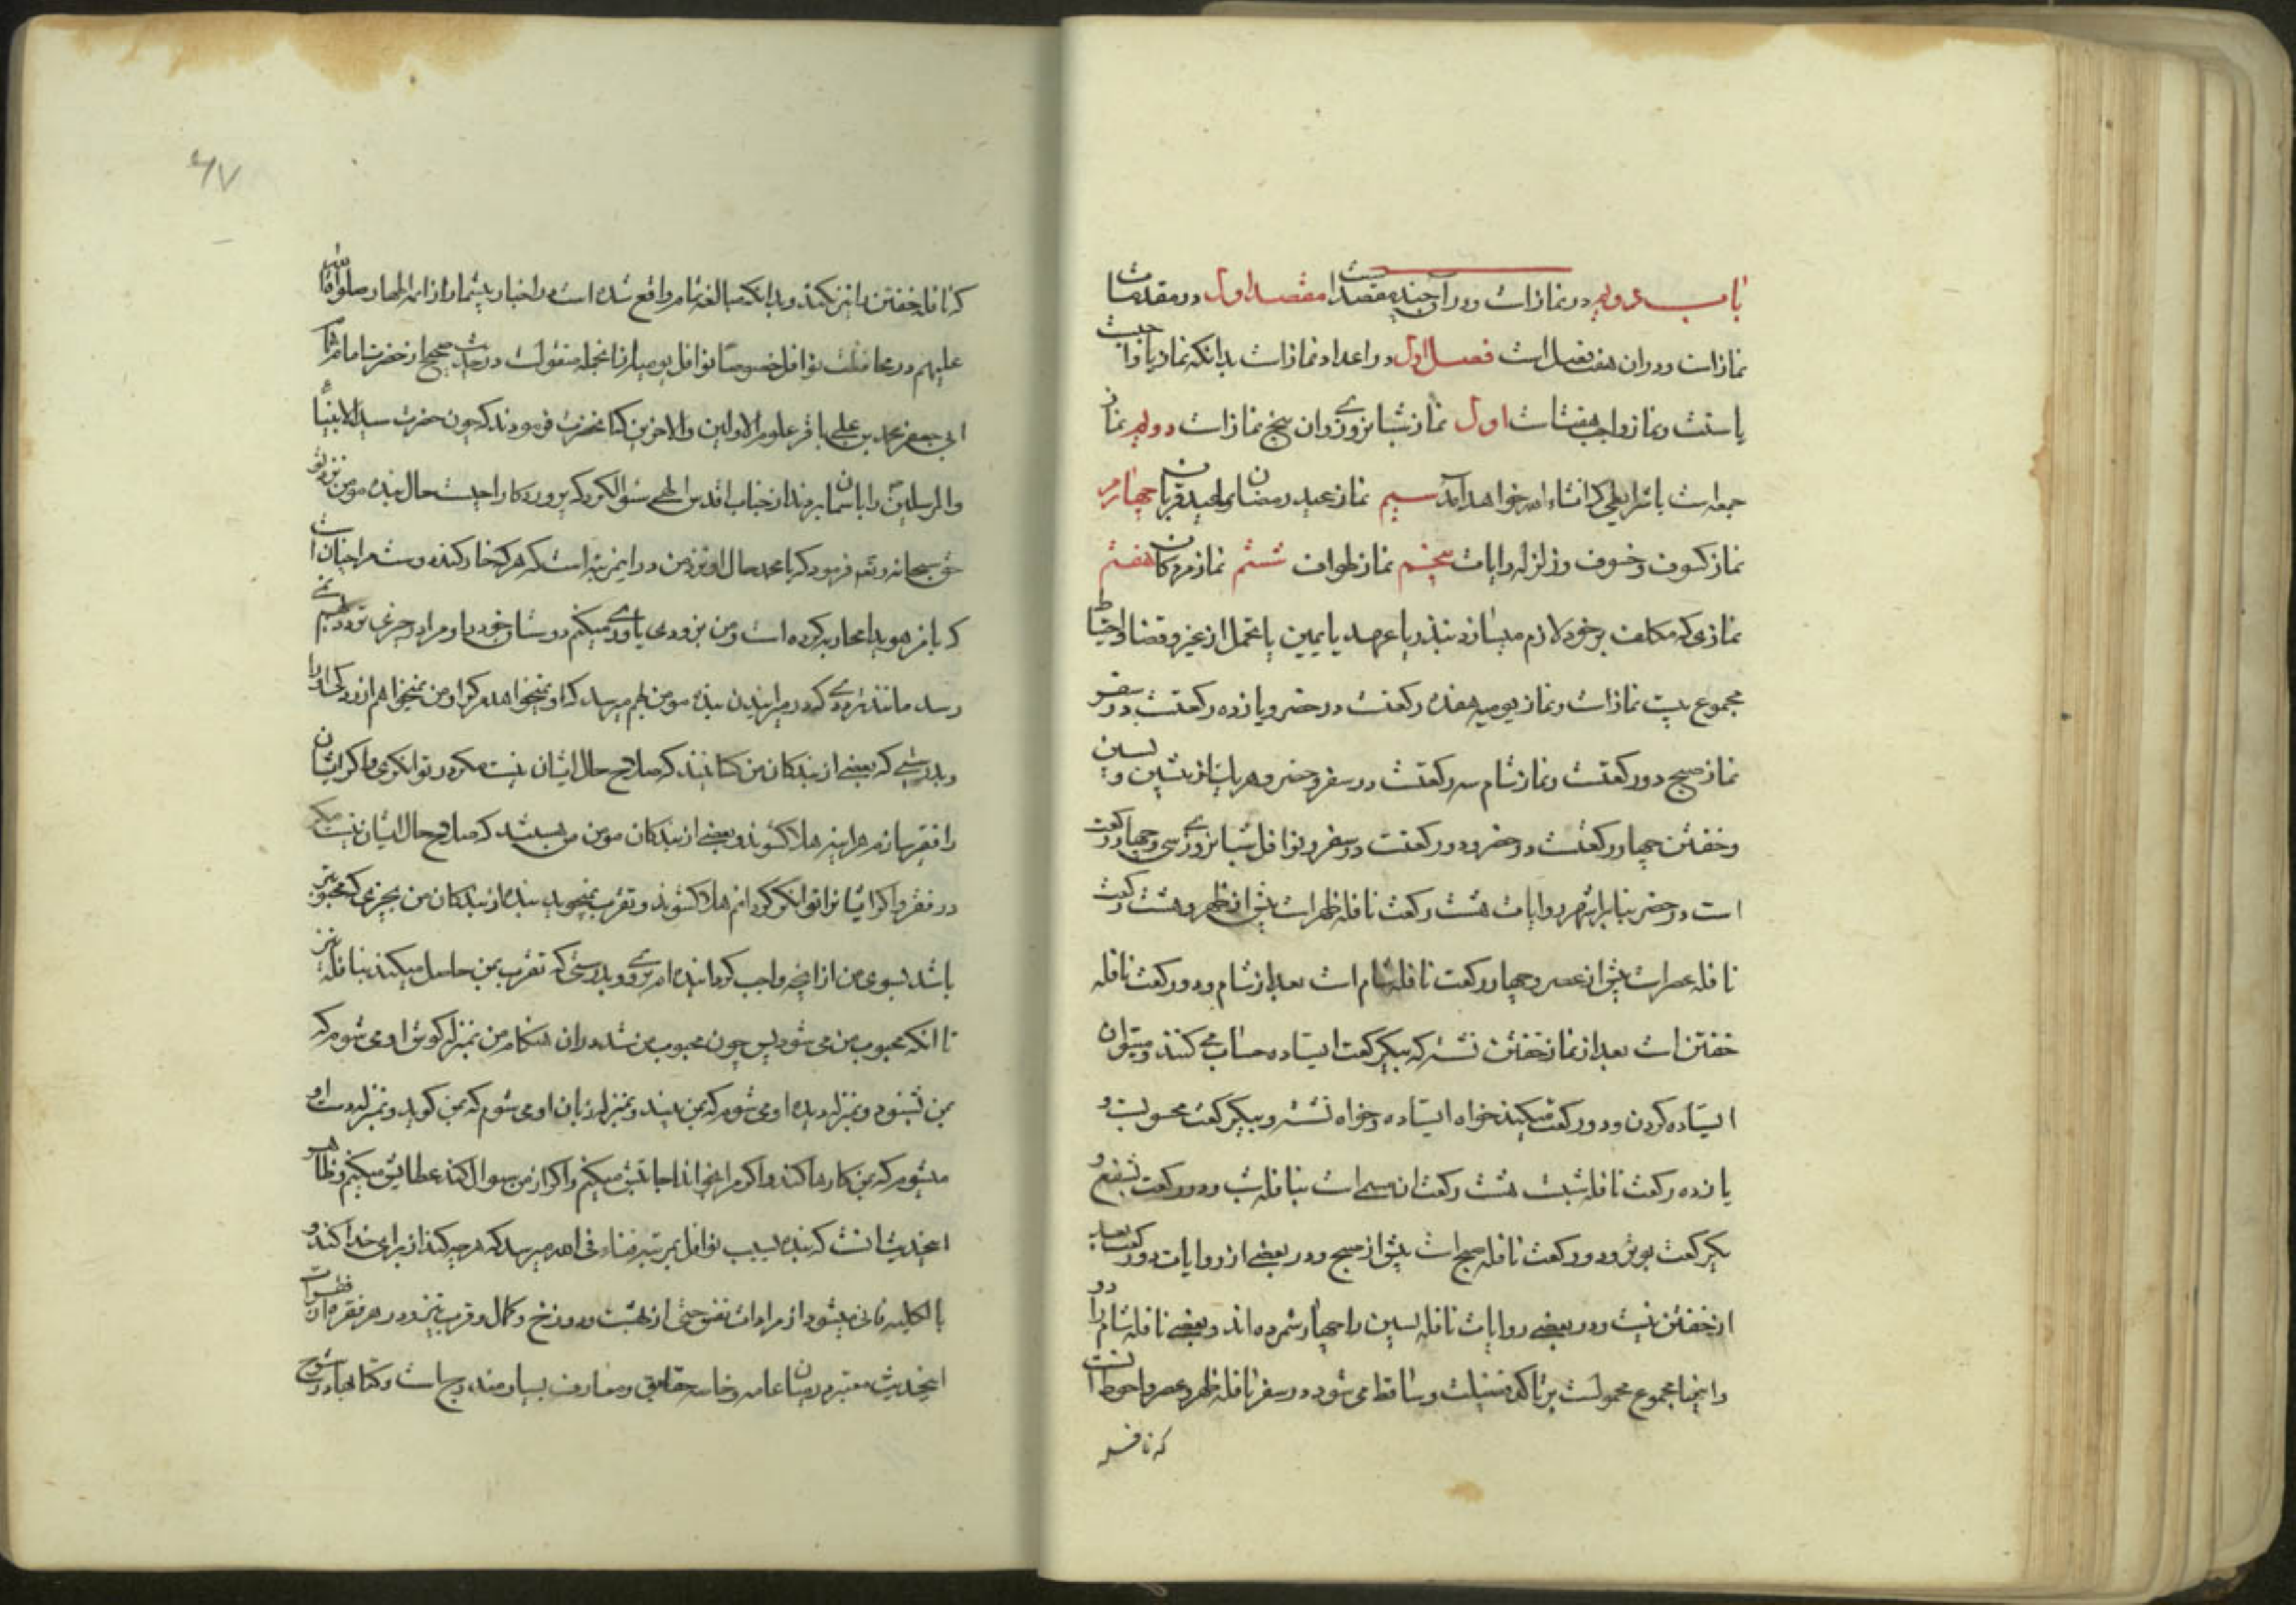 باب دویم در نماز است و در آن چند مقصد است مقصد اول در مقدمات
نماز است و در ان هفت فصل است فصل اول در اعداد نماز است بدانکه نماز یا واجبست
یا سنت و نماز واجب هفت است اول نماز شبانروزی و ان پنج نماز است دویم نماز
جمعه است با شرایطی که انشاء الله خواهد آمد سیم نماز عید رمضان و عید قربان چهارم
نماز کسوف و خسوف و زلزله و ایات پنجم نماز طواف ششم نماز مردکان هفتم
نمازی که مکلف بر خود لازم میسازد بنذر یا عهد یا یمین یا تحمل از غیر و قضا و احتیاط
مجموع بیست نماز است و نماز یومیه هفده رکعتست در حضر و یازده رکعتست در سفر
نماز صبح دو رکعتست و نماز شام سه رکعتست در سفر و حضر و هر یک از پیشین و پسین
و خفتن چهار رکعتست در حضر و دو رکعتست در سفر و نوافل شبانروزی سی و چهار رکعت
است در حضر بنا بر اشهر روایات هشت رکعت نافله ظهر است پیش از ظهر و هشت رکعت
نافله عصر است پیش از عصر و چهار رکعت نافله شام است بعد از شام و دو رکعت نافله
خفتن است بعد از نماز خفتن نشسته که بیکرکعت ایستاده حساب می کنند و میتوان
ایستاده کردن و دو رکعت میکنند خواه ایستاده و خواه نشسته و بیکرکعت محسوبست و
یازده رکعت نافله شبست هشت رکعت ان مسمی است بنافله شب و دو رکعت بشفع و
یکرکعت بوتر و دو رکعت نافله صبح است پیش از صبح و در بعضی از روایات دو رکعت بعد
از خفتن نیست و در بعضی روایات نافله پسین را چهار شمرده اند و بعضی نافله شام را دو
و اینها مجموع محمولست بر تاکد فضیلت و ساقط می شود در سفر نافله ظهر و عصر و احوط انست
که نافله
۶۷
که نافله خفتن را نیز نکنند و بدانکه مبالغه تمام واقع شده است در اخبار بیشمار از ائمه اطهار صلوات الله
علیهم در محافظت نوافل خصوصا نوافل یومیه از انجمله منقولست در حدیث صحیح از حضرت امام
ابی جعفر محمد بن علی باقر علوم الاولین والاخرین که انحضرت فرمودند که چون حضرت سید الانبیاء
والمرسلین را باسمان بردند از جناب اقدس الهی سؤال کرد که پروردکارا چیست حال بنده مومن نزد تو
حق سبحانه و تعالی فرمود که یا محمد حال او نزد من در این مرتبه است که هر که خار کند دوست مرا چنان است
که با من هویدا محاربه کرده است و من بزودی یاوری میکنم دوستان خود را و مرا در چیزی تردد نمی
رسد مانند ترددی که در میرانیدن بنده مومن بهم میرسد که او نمیخواهد مرک را و من نمیخواهم ازردکی او را
و بدرستی که بعضی از بندکان من کسانیند که صلاح حال ایشان نیست مکر در توانکری و اکر ایشان
را فقیر سازم هراینه هلاک شوند و بعضی از بندکان مومن من هستند که صلاح حال ایشان نیست مکر
در فقر و اکر ایشانرا توانکر کردانم هلاک شوند و تقرب نمیجوید بنده از بندکان من بچیزی که محبوبتر
باشد بسوی من از انچه واجب کردانیده ام بر او و بدرستی که تقرب بمن حاصل میکند بنافله نیز
تا انکه محبوب من می شود پس چون محبوب من شد در ان هنکام من بمنزله کوش او می شوم که
بمن شنود و بمنزله دیده او می شوم که بمن بیند و بمنزله زبان او می شوم که بمن کوید و بمنزله دست او
میشوم که بمن کارها کند و اکر مرا بخواند اجابتش میکنم و اکر از من سوال کند عطایش میکنم و ظاهر
اینحدیث انست که بنده بسبب نوافل بمرتبه فناء فی الله میرسد که هر چه کند از برای خدا کند و
بالکلیه فانی میشود از مرادات نفس حتی از بهشت و دوزخ و کمال و قرب نیز و در هر فقره از فقرات
اینحدیث معتبر در میان عامه و خاصه حقایق و معارف بسیار مندرج است و کتابها در شرح